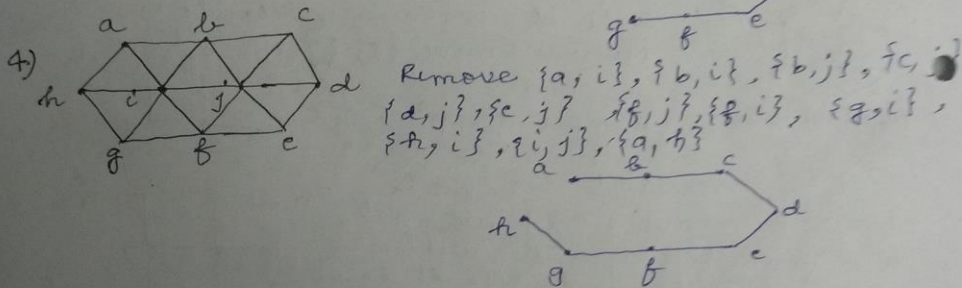 g f e
4.)
a b c
h i j d
g f e
Remove {a, i}, {b, i}, {b, j}, {c, j}
{d, j}, {e, j}, {f, j}, {f, i}, {g, i},
{h, i}, {i, j}, {a, h}
a b c
h d
g f e